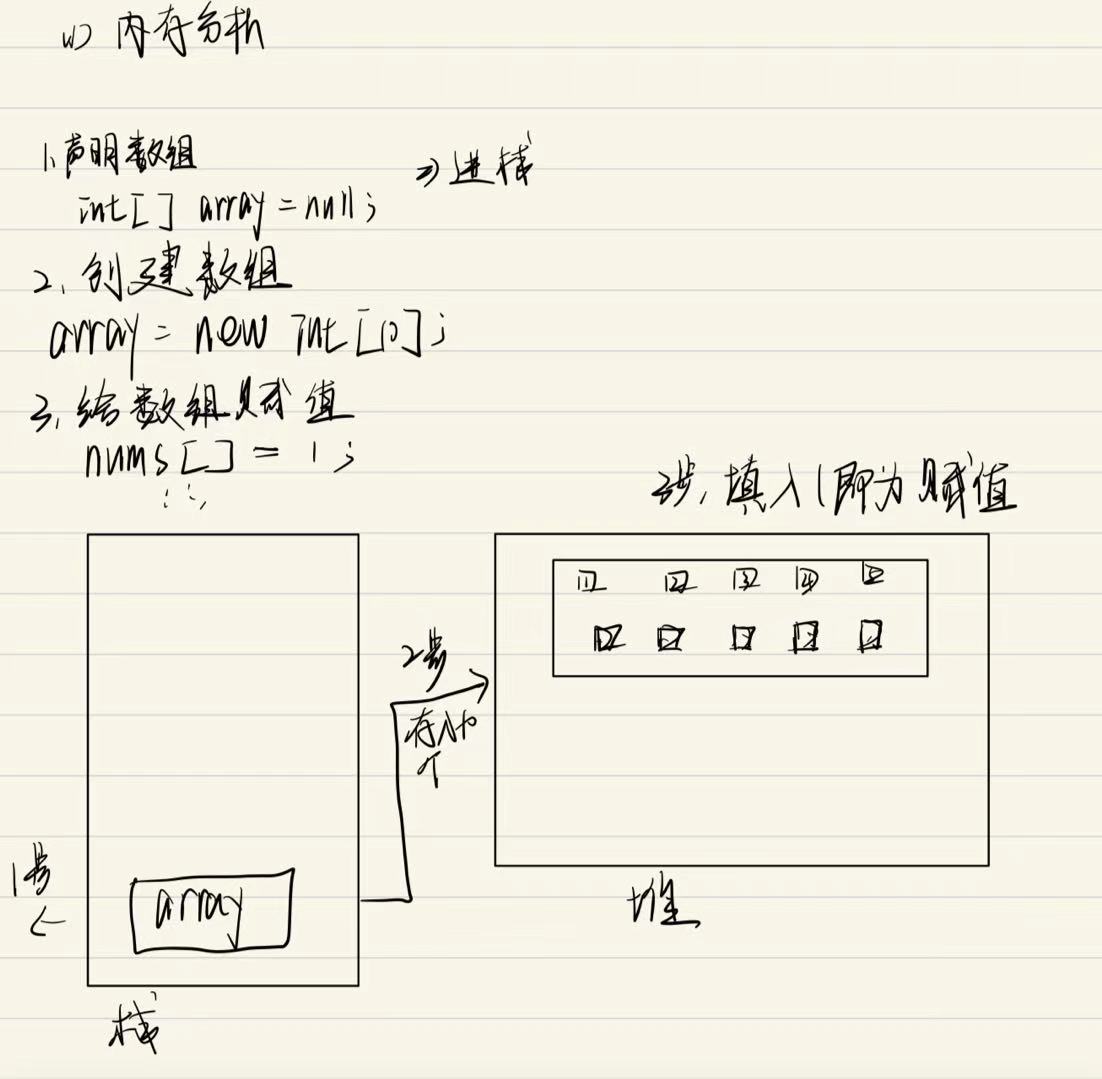 (1) 内存分析
1、声明数组
int[] array = null;
⇒ 进栈
2、创建数组
array = new int[10];
3、给数组赋值
nums[] = 1;
3步,填入(即为赋值
1 2 3 4 5
2步
存入10
个
1步
←
array
堆
栈